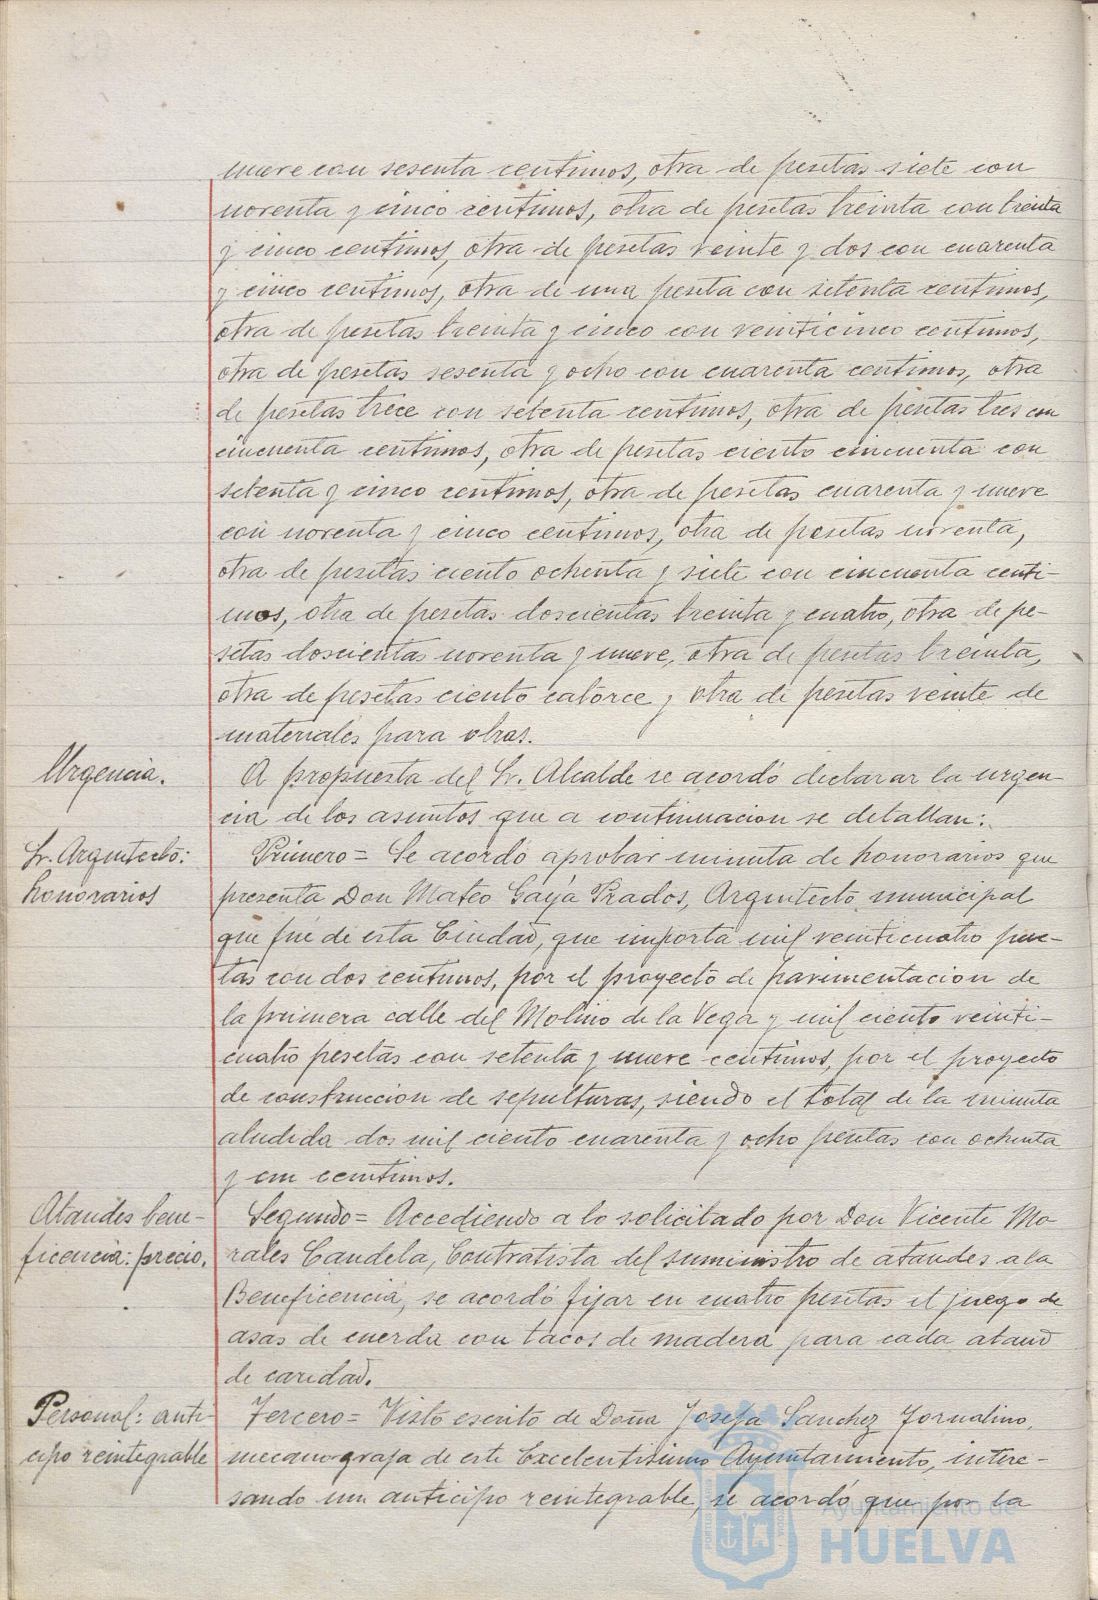 nueve con sesenta centimos, otra de pesetas siete con
noventa y cinco centimos, otra de pesetas treinta con treinta
y cinco centimos, otra de pesetas veinte y dos con cuarenta
y cinco centimos, otra de una peseta con setenta centimos,
otra de pesetas treinta y cinco con veinticinco centimos,
otra de pesetas sesenta y ocho con cuarenta centimos, otra
de pesetas trece con setenta centimos, otra de pesetas tres con
cincuenta centimos, otra de pesetas ciento cincuenta con
setenta y cinco centimos, otra de pesetas cuarenta y nueve
con noventa y cinco centimos, otra de pesetas noventa,
otra de pesetas ciento ochenta y siete con cincuenta centi-
mos, otra de pesetas doscientas treinta y cuatro, otra de pe-
setas doscientas noventa y nueve, otra de pesetas treinta,
otra de pesetas ciento catorce y otra de pesetas veinte de
materiales para obras.
Urgencia.
A propuesta del Sr. Alcalde se acordó declarar la urgen-
cia de los asuntos que a continuacion se detallan:
Sr. Arquitecto:
honorarios
Primero= Se acordó aprobar minuta de honorarios que
presenta Don Mateo Gayá Prados, Arquitecto municipal
que fué de esta Ciudad, que importa mil veinticuatro pese-
tas con dos centimos, por el proyecto de pavimentacion de
la primera calle del Molino de la Vega y mil ciento veinti-
cuatro pesetas con setenta y nueve centimos, por el proyecto
de construccion de sepulturas, siendo el total de la minuta
aludida dos mil ciento cuarenta y ocho pesetas con ochenta
y un centimos.
Ataudes bene-
ficencia: precio.
Segundo= Accediendo a lo solicitado por Don Vicente Mo-
rales Candela, Contratista del suministro de ataudes a la
Beneficencia, se acordó fijar en cuatro pesetas el juego de
asas de cuerda con tacos de madera para cada ataud
de caridad.
Personal: anti-
cipo reintegrable
Tercero= Visto escrito de Doña Josefa Sanchez Tornalino,
mecanografa de este Excelentisimo Ayuntamiento, intere-
sando un anticipo reintegrable, se acordó que por la
Ayuntamiento de
HUELVA